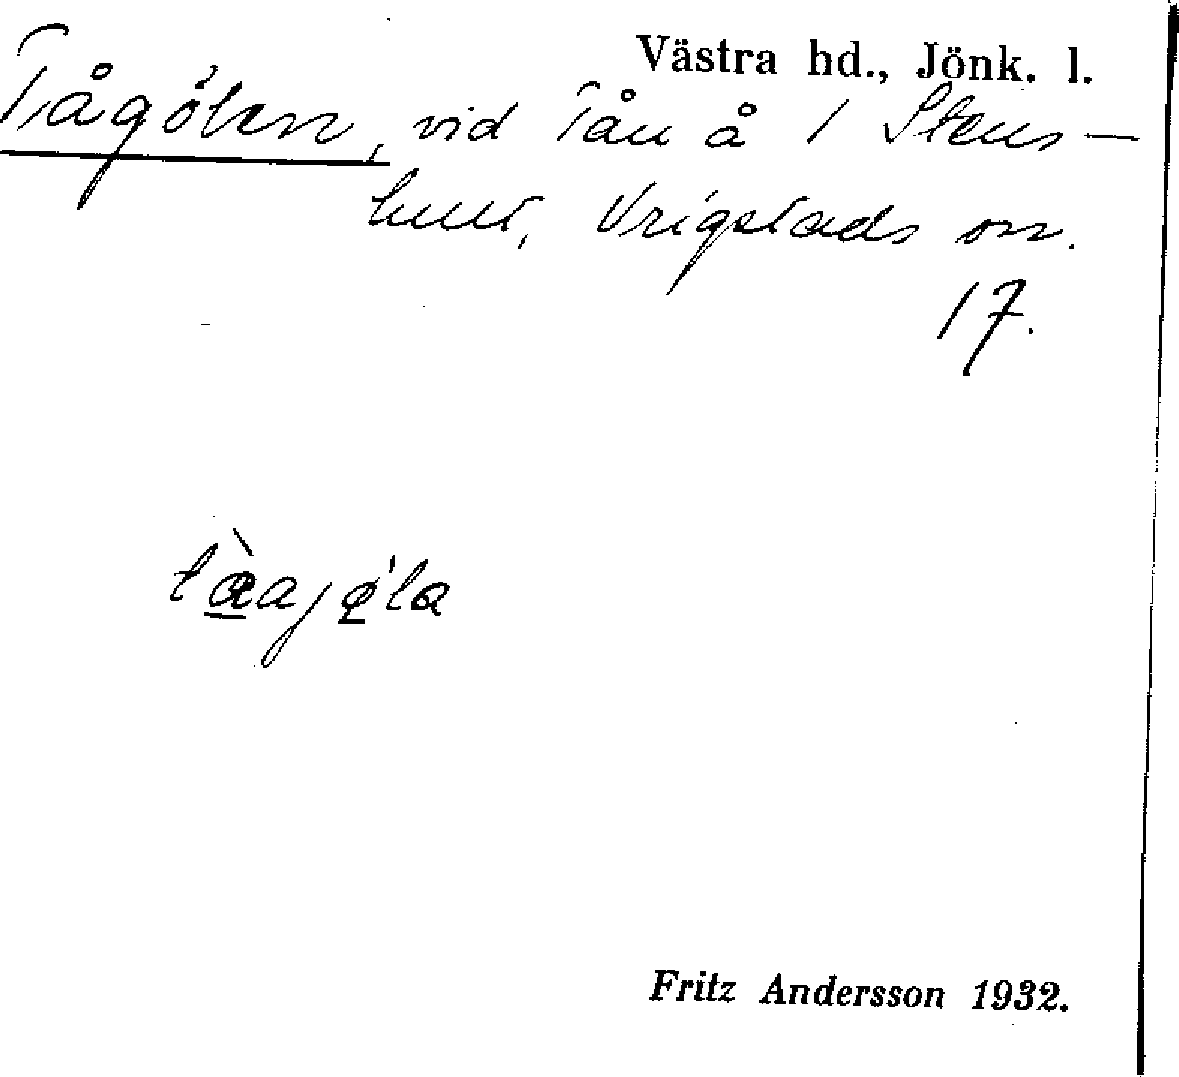 Västra hd., Jönk. l.
Tågölen, vid Tån å i Stens-
hult, Vrigstads sn.
17.
Fritz Andersson 1932.